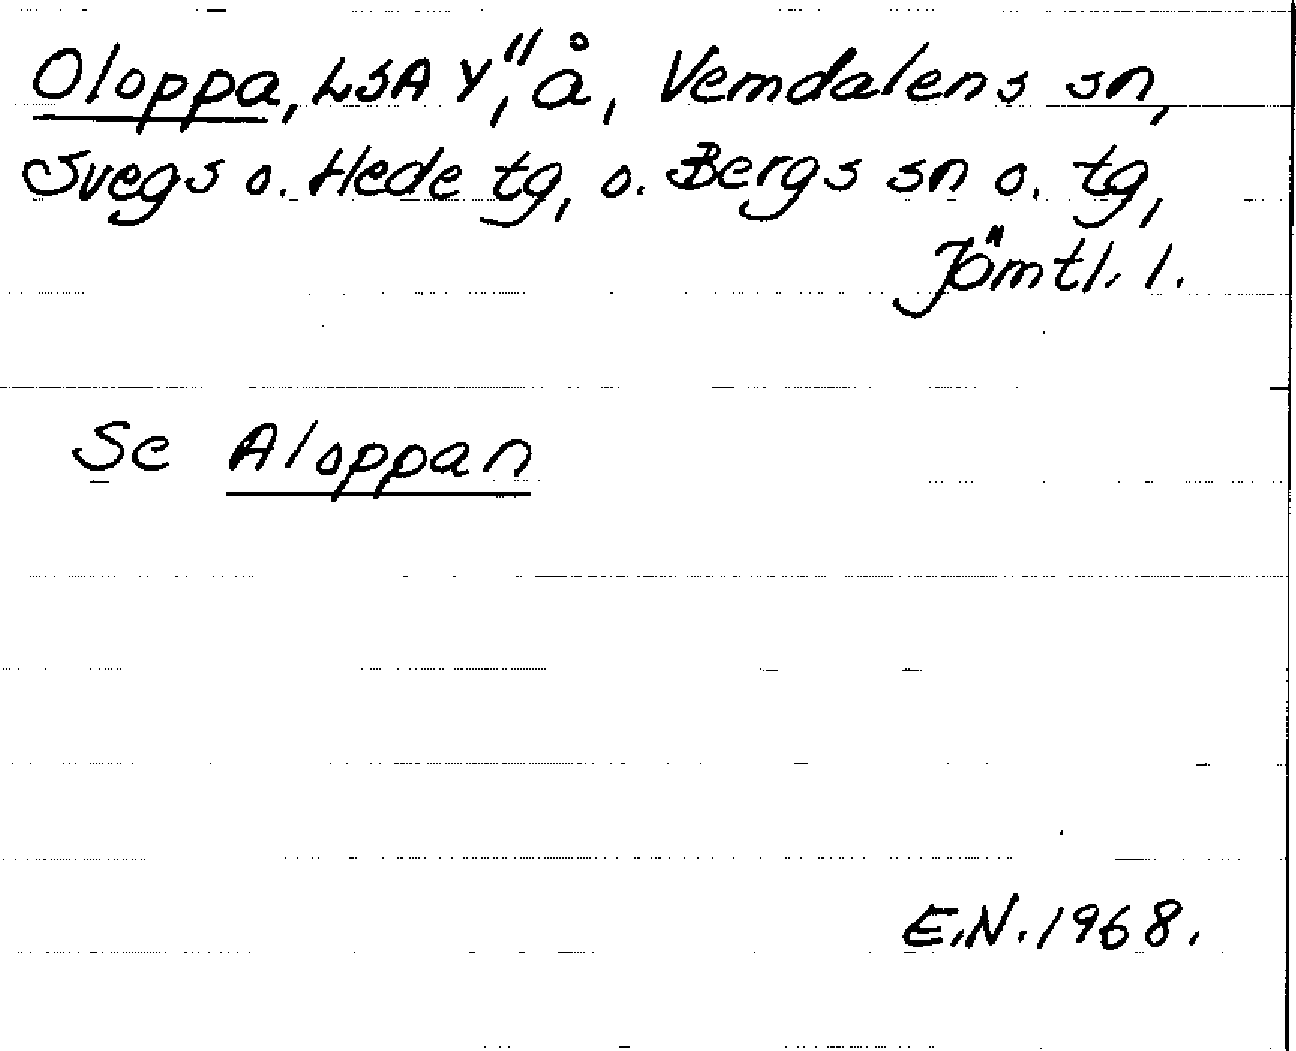 Oloppa, LSA Y," å, Vemdalens sn,
Svegs o. Hede tg, o. Bergs sn o. tg,
Jämtl. l.
Se Aloppan
E.N. 1968.